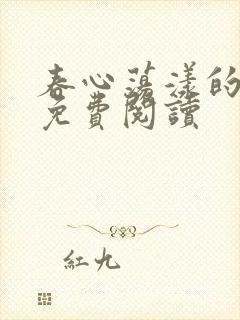 春心蕩漾的
免費閱讀
紅九